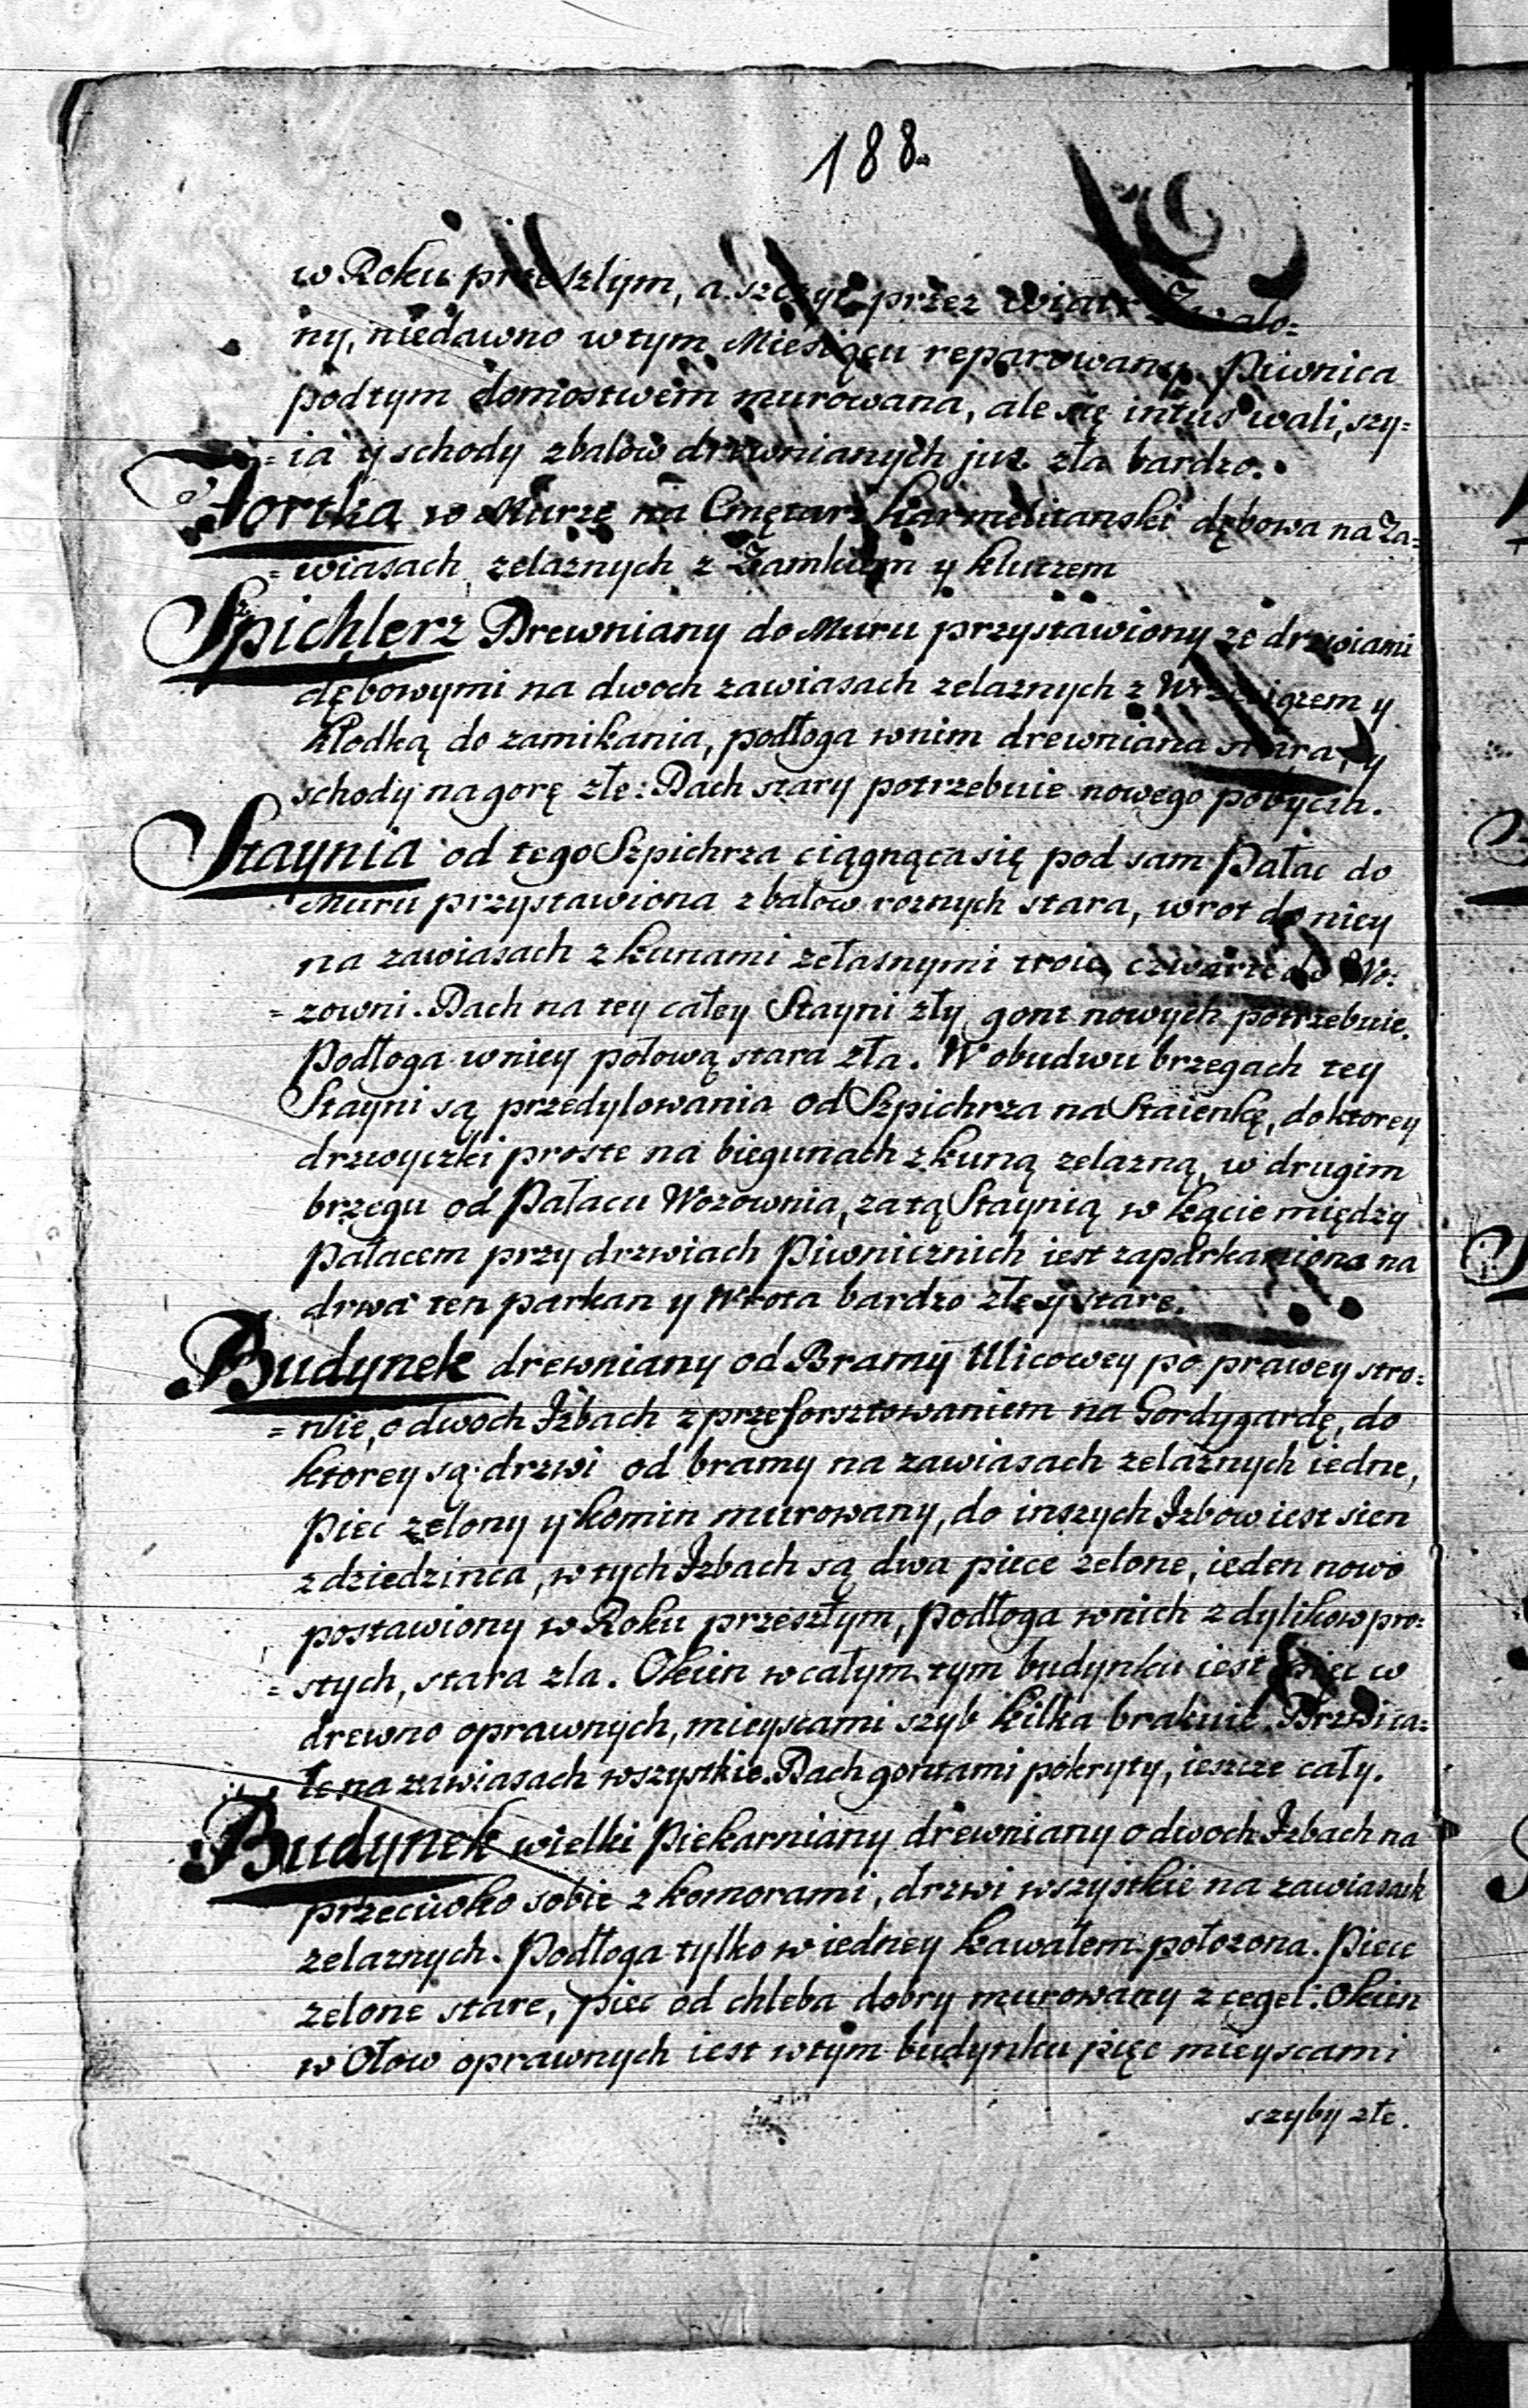 188.
w Roku przeszłym, a szczyt przez wiatr Zwalo=
ny, niedawno w tym Miesiącu reparowany. Piwnica
pod tym domostwem murowana, ale się intus wali, szy=
=ia y schody z balow drewnianych już zła bardzo.
Fortka w Murze na Cmętarz Karmelitanski dębowa na Za=
=wiasach zelaznych z Zamkiem y kluczem
Szpichlerz Drewniany do Muru przystawiony ze drzwiami
dębowymi na dwoch zawiasach zelaznych z Wrzeciązem y
kłodką do zamikania, podłoga w nim drewniana stara, y
schody na gorę złe: Dach stary potrzebuie nowego pobycia.
Staynia od tego Szpichrza ciągnąca się pod sam Pałac do
Muru przystawiona z balow roznych stara, wrot do niey
na zawiasach z kunami zelasnymi troie, czwarte do Wo=
=zowni. Dach na tey całey Stayni zły gont nowych potrzebuie.
Podłoga w niey połową stara zła. W obudwu brzegach tey
Stayni są przedylowania od Szpichrza na Staienkę, do ktorey
drzwyczki proste na biegunach z kuną zelazną, w drugim
brzegu od Pałacu Wozownia, za tą Staynią w kącie między
Pałacem przy drzwiach Piwnicznich iest zaparkaniona na
drwa ten parkan y Wrota bardzo złe y stare.
Budynek drewniany od Bramy Ulicowey po prawey stro=
=nie, o dwoch Izbach z przeforsztowaniem na Gordygardę, do
ktorey są drzwi od bramy na zawiasach zelaznych iedne,
Piec zelony y komin murowany, do inszych Izbow iest sien
z dziedzinca, w tych Izbach są dwa piece zelone, ieden nowo
postawiony w Roku przeszłym, Podłoga w nich z dylikow pro=
=stych, stara zla. Okien w całym tym budynku iest pięc w
drewno oprawnych, mieyscami szyb kilka brakuie. Drzwi ca=
łe na zawiasach wszystkie. Dach gontami pokryty, ieszcze cały.
Budynek wielki Piekarniany drewniany o dwoch Izbach na
przeciwko sobie z komorami, drzwi wszystkie na zawiasach
zelaznych. Podłoga tylko w iedney kawałem połozona. Piece
zelone stare, piec od chleba dobry murowany z cegeł: Okien
w Ołow oprawnych iest w tym budynku pięc mieyscami
szyby złe.